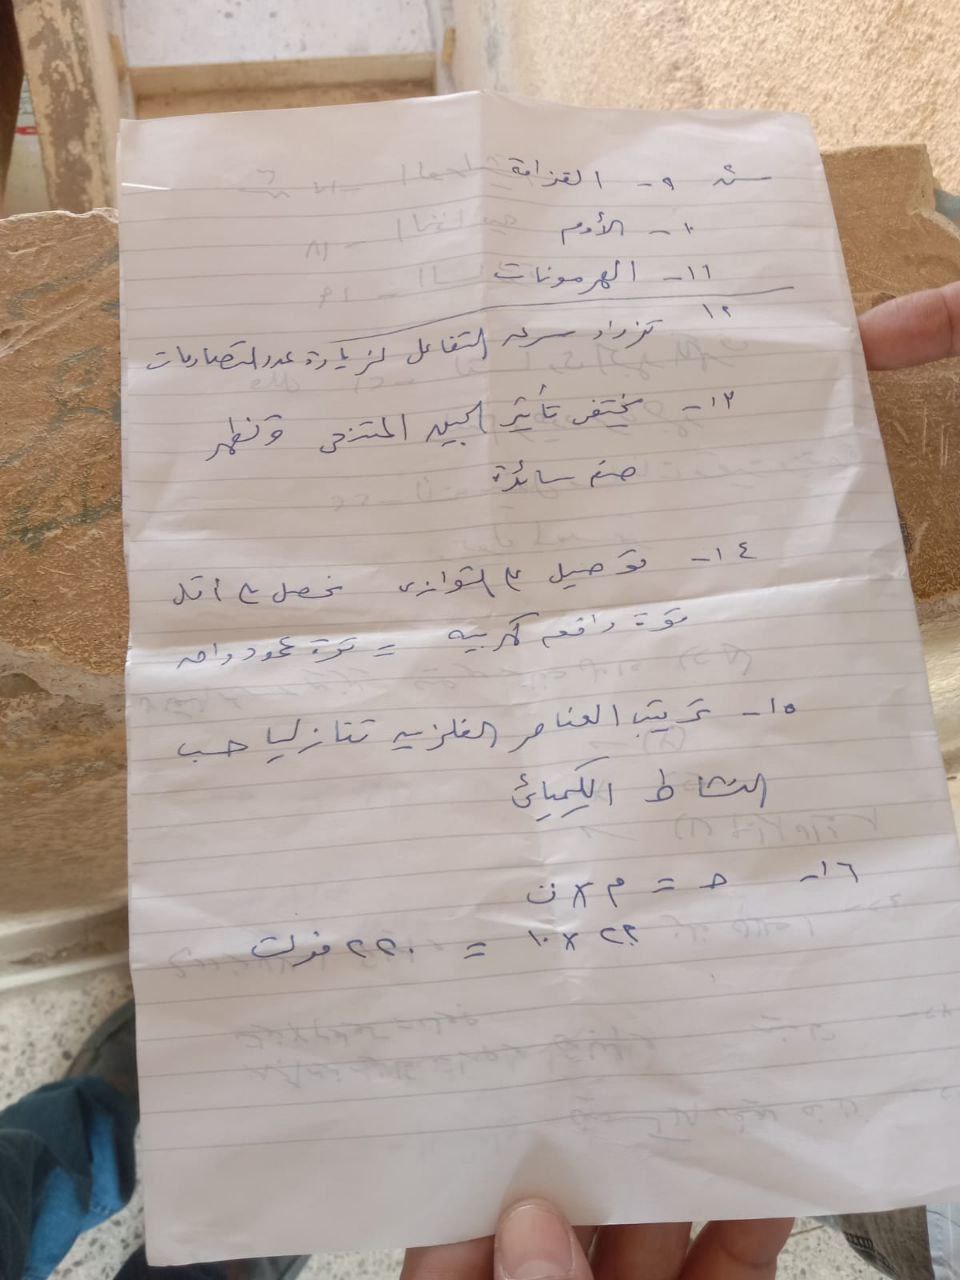 ٩- القزامة
١٠- الأدوم
١١- الهرمونات
١٢ تزداد سرعه التفاعل لزيادة عدد التصادمات
١٣- يختفى تأثير الجين المتنحى وتظهر
صفه سائدة
١٤- توصيل ع التوازى نحصل ع أقل
قوة دافعه كهربيه = قوة عمود واحد
١٥- ترتيب العناصر الفلزيه تنازليا حسب
النشاط الكيميائى
١٦- جـ = م × ت
٢٢ × ١٠ = ٢٢٠ فولت